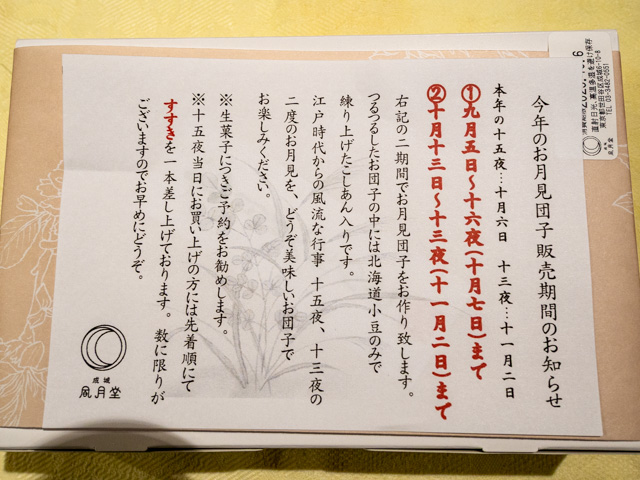 今年のお月見団子販売期間のお知らせ
本年の十五夜…十月六日　十三夜…十一月二日
①九月五日～十六夜(十月七日)まで
②十月十三日～十三夜(十一月二日)まで
右記の二期間でお月見団子をお作り致します。
つるつるしたお団子の中には北海道小豆のみで
練り上げたこしあん入りです。
江戸時代からの風流な行事　十五夜、十三夜の
二度のお月見を、どうぞ美味しいお団子で
お楽しみください。
※生菓子につきご予約をお勧めします。
※十五夜当日にお買い上げの方には先着順にて
すすきを一本差し上げております。数に限りが
ございますのでお早めにどうぞ。
成城
風月堂
直射日光、高温多湿を避け保存
東京都世田谷区成城6-10-6
TEL 03-3482-0551
成城
風月堂